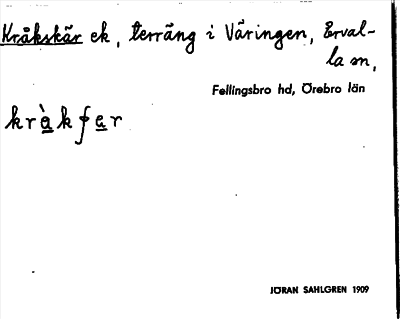 Kråkskär ek, terräng i Väringen, Erval-
la sn,
Fellingsbro hd, Örebro län
krὰkʃɑr
JÖRAN SAHLGREN 1909